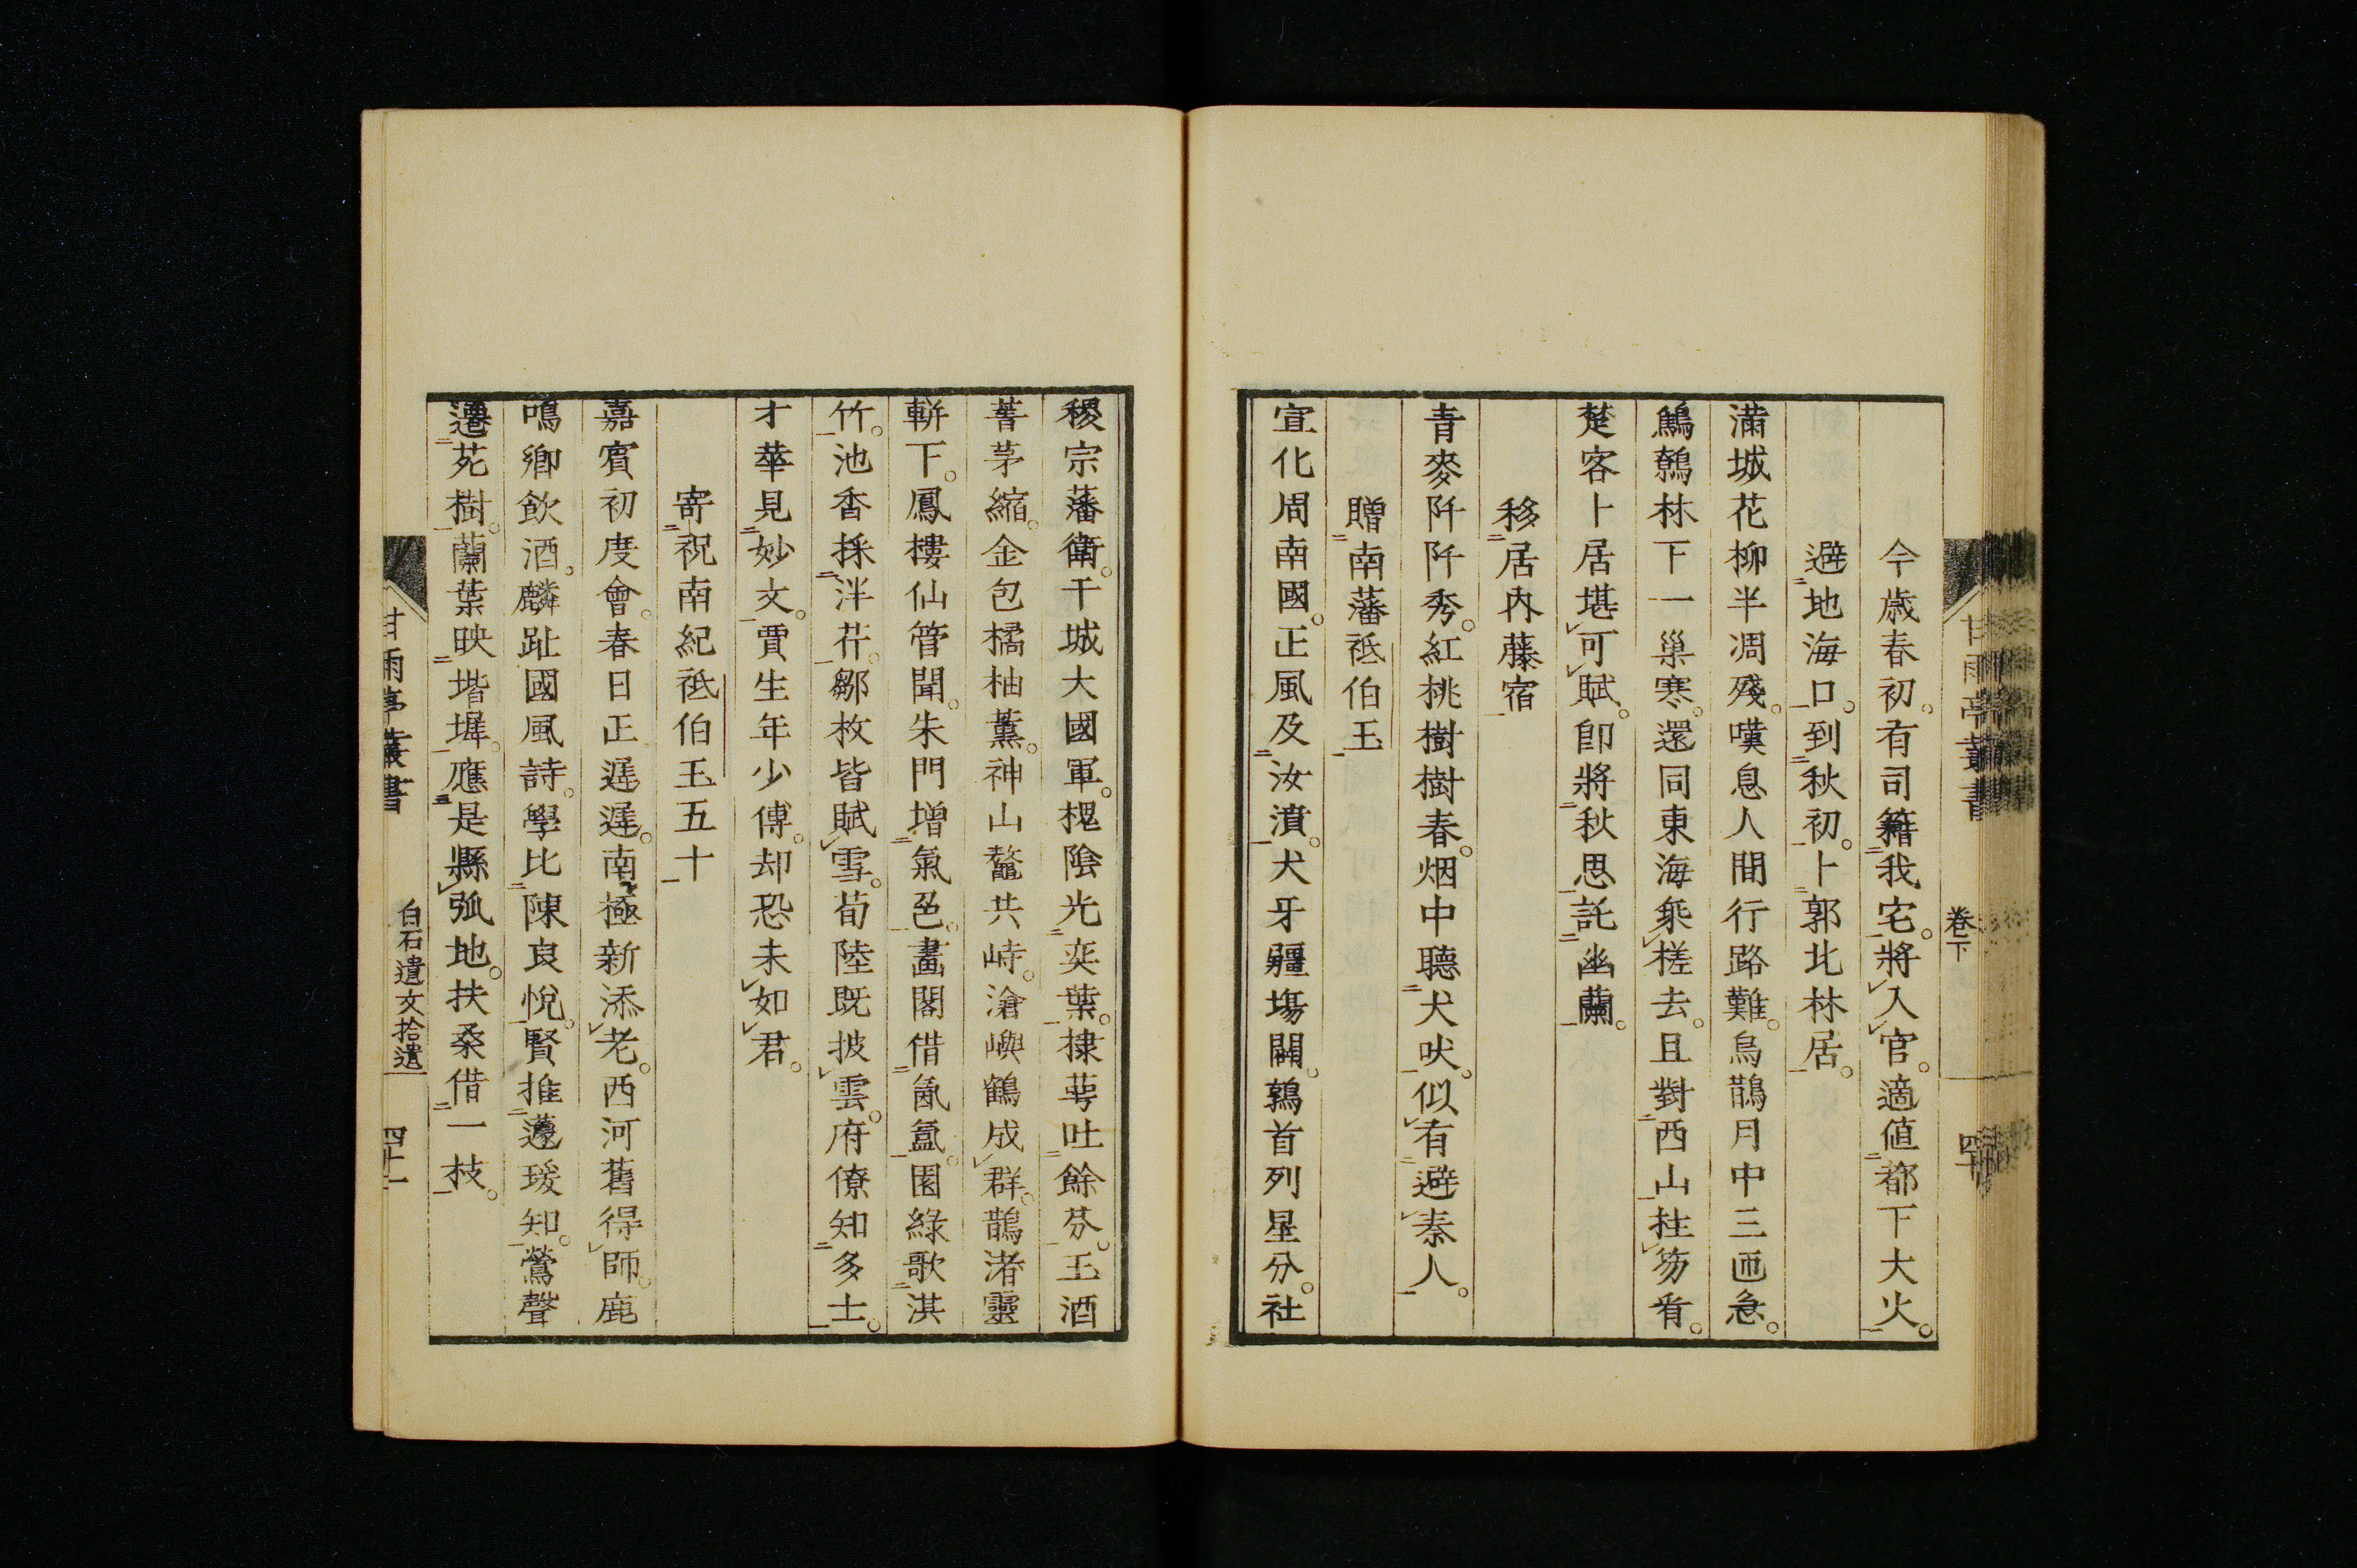 今歳春初。有司籍我宅。將入官。適値都下大火。
避地海口。到秋初。卜郭北林居。
滿城花柳半凋殘。嘆息人間行路難。烏鵲月中三匝急。
鷦鷯林下一巢寒。還同東海乘槎去。且對西山拄笏看。
楚客卜居堪可賦。卽將秋思託幽蘭。
移居內藤宿
青麥阡阡秀。紅桃樹樹春。烟中聽犬吠。似有避秦人。
贈南藩祗伯玉
宣化周南國。正風及汝濆。犬牙疆場闢。鶉首列星分。社
稷宗藩衛。干城大國軍。槐陰光奕葉。棣萼吐餘芬。王酒
菁茅縮。金包橘柚薫。神山鼇共峙。滄嶼鶴成群。鵲渚靈
軿下。鳳樓仙管聞。朱門增氣色。畫閣借氤氳。園綠歌淇
竹。池香採泮芹。鄒枚皆賦雪。荀陸既披雲。府僚知多士。
才華見妙文。賈生年少傅。却恐未如君。
寄祝南紀祗伯玉五十
嘉賓初度會。春日正遲遲。南極新添老。西河舊得師。鹿
鳴鄉飲酒。麟趾國風詩。學比陳良悅。賢推蘧瑗知。鶯聲
遷苑樹。蘭葉映堦墀。應是縣弧地。扶桑借一枝。
甘雨亭叢書
卷下
四十
甘雨亭叢書
白石遺文拾遺
四十一